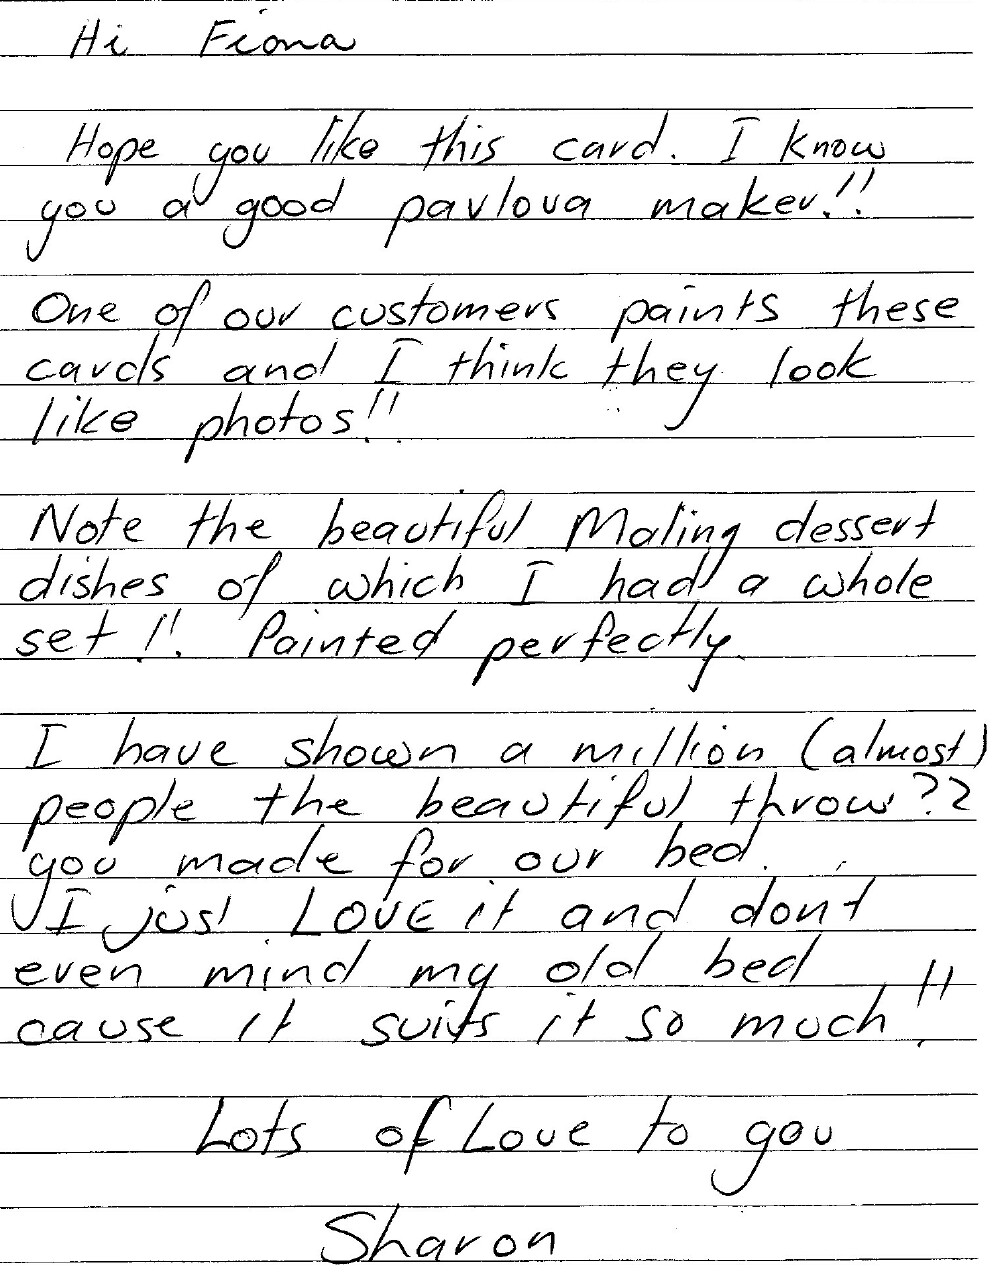 Hi Fiona
Hope you like this card. I know
you a good pavlova maker!!
One of our customers paints these
cards and I think they look
like photos!!
Note the beautiful Maling dessert
dishes of which I had a whole
set!! Painted perfectly.
I have shown a million (almost)
people the beautiful throw??
you made for our bed.
I just LOVE it and don't
even mind my old bed
cause it suits it so much!!
Lots of Love to you
Sharon